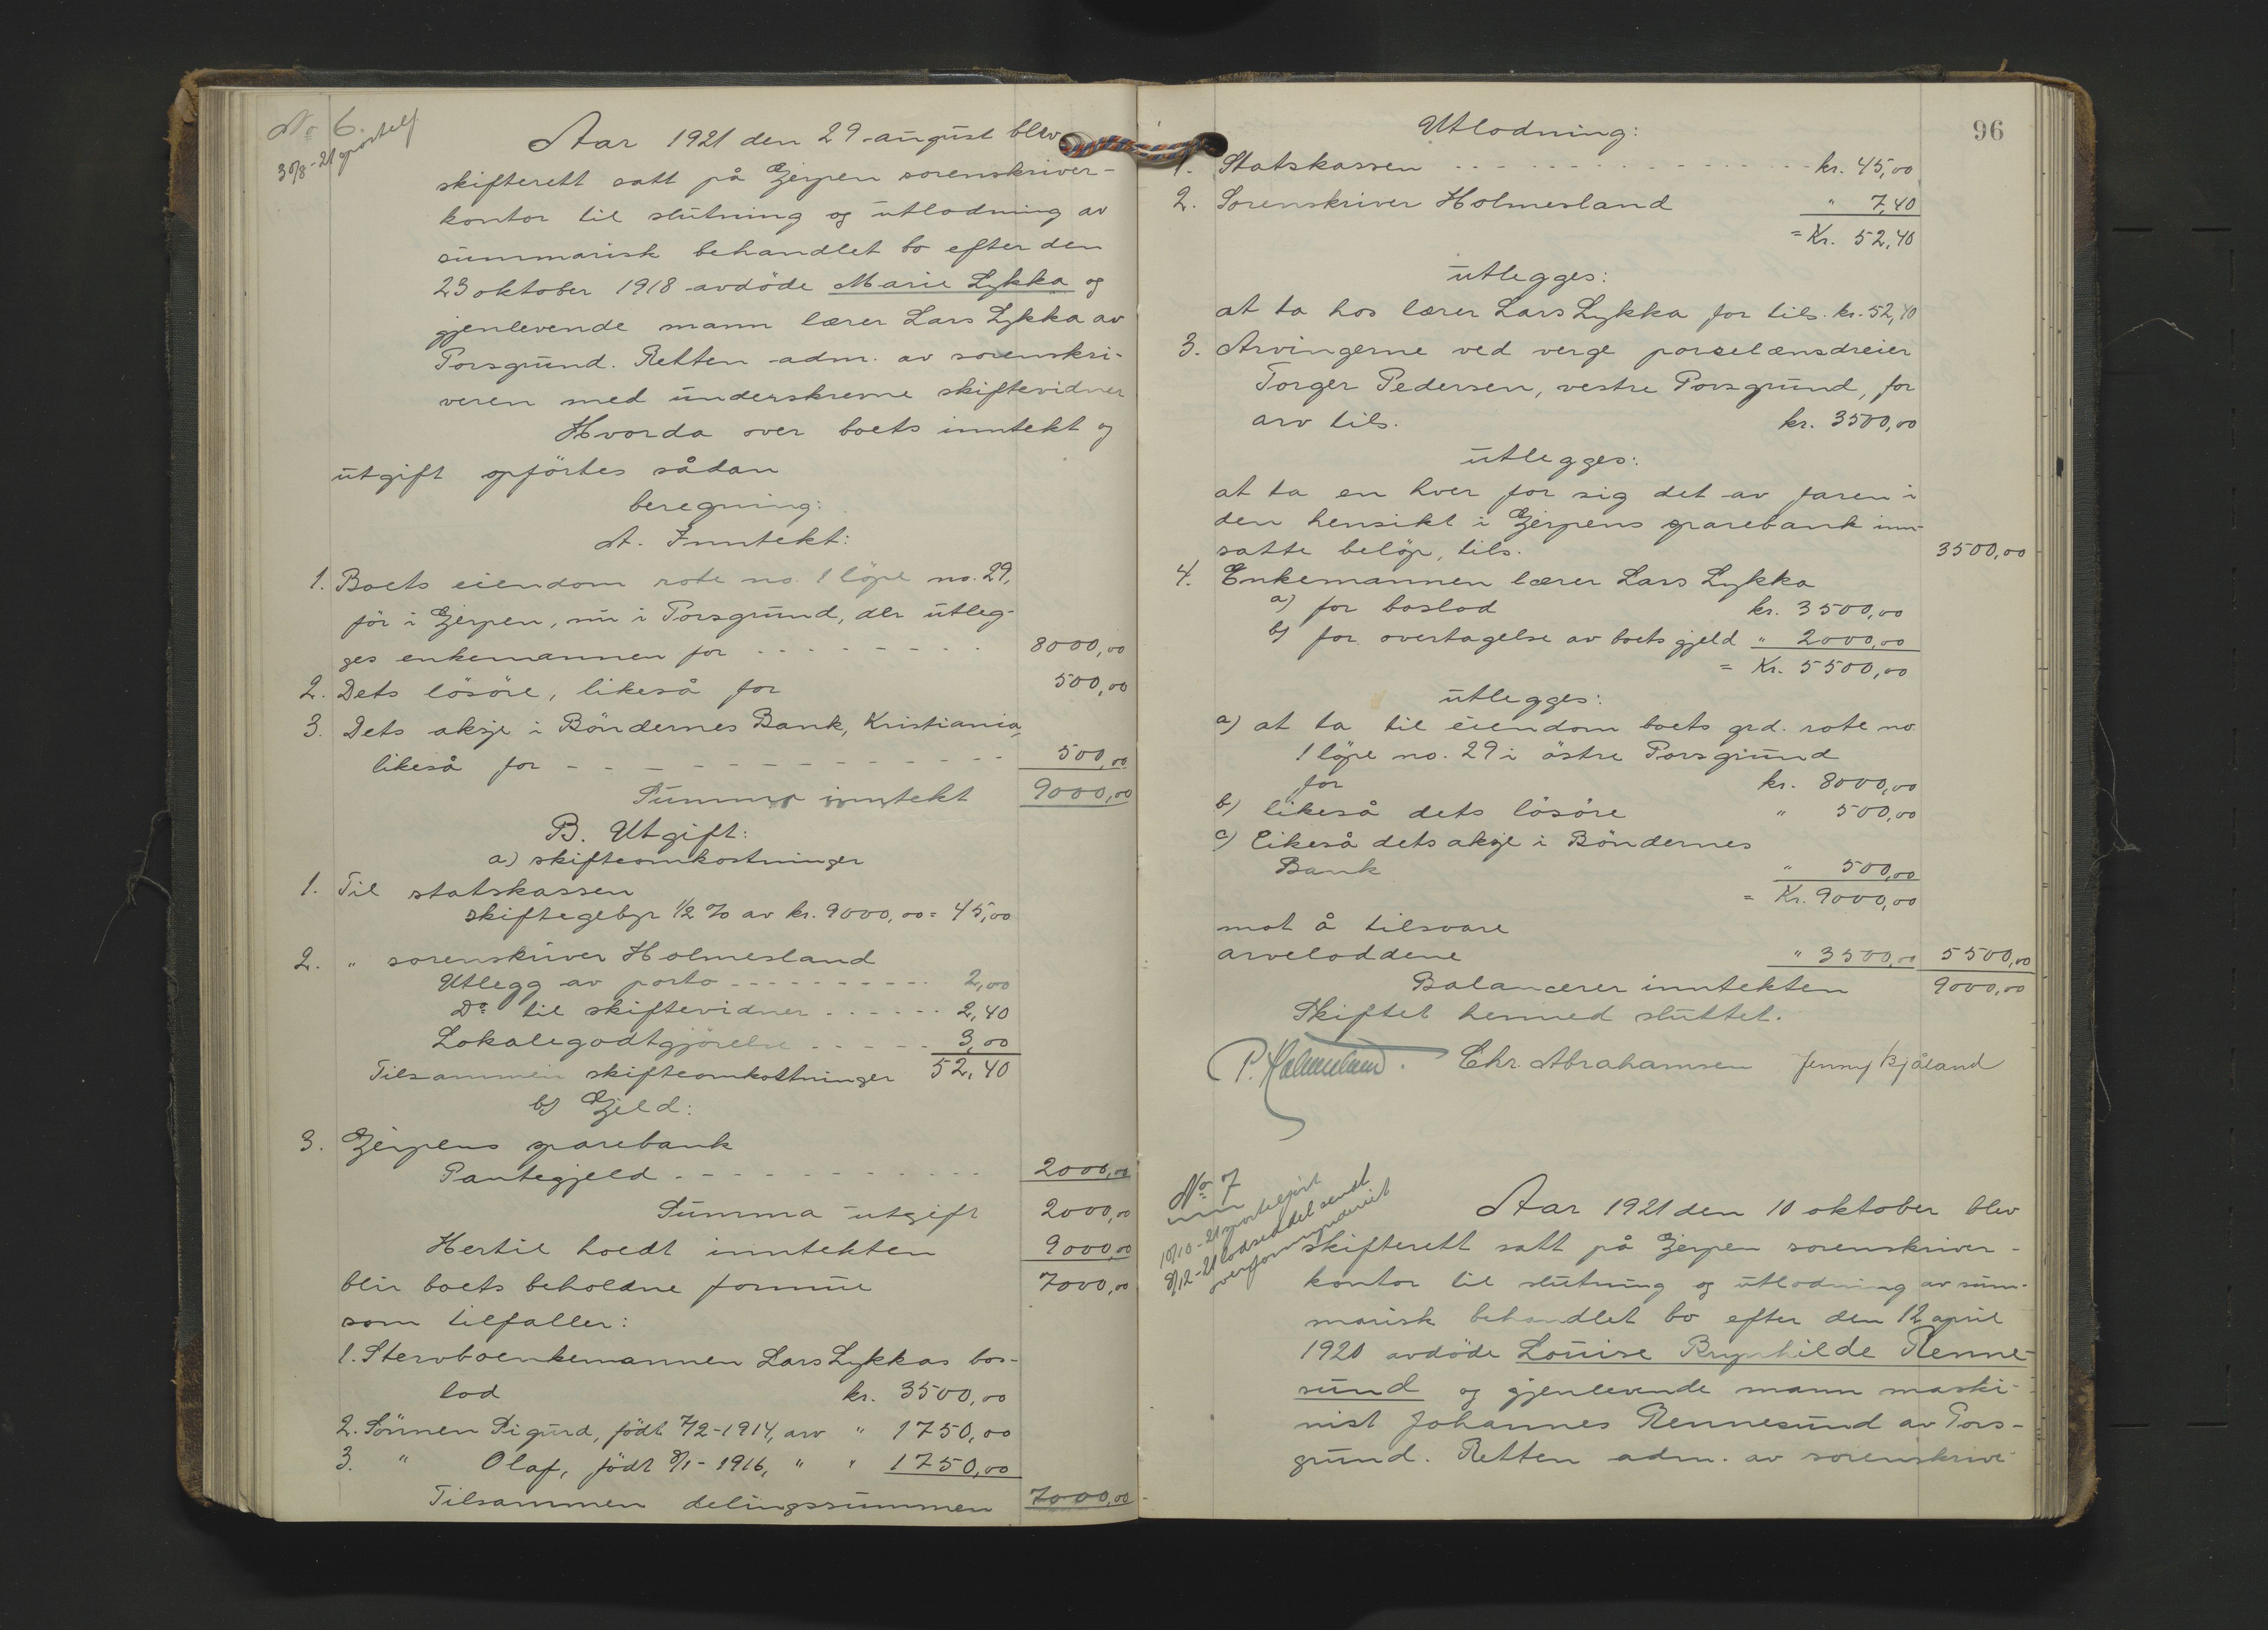 No 6.
30/8-21 sportelf
Aar 1921 den 29 august blev
skifterett satt på Gjerpen sorenskriver-
kontor til slutning og utlodning av
summarisk behandlet bo efter den
23 oktober 1918 avdöde Marie Lykka og
gjenlevende mann lærer Lars Lykka av
Porsgrund. Retten adm. av sorenskri-
veren med underskrevne skiftevidner
Hvorda over boets inntekt og
utgift opförtes sådan
beregning:
A. Inntekt:
1. Boets eiendom rote no. 1 löpe no. 29,
för i Gjerpen, nu i Porsgrund, der utleg-
ges enkemannen for 8000,00
2. Dets lösöre, likeså for 500,00
3. Dets aksje i Böndernes Bank, Kristiania,
likeså for 500,00
Summa inntekt 9000,00
B. Utgift:
a) skifteomkostninger
1. Til statskassen
skiftegebyr 1/2 % av kr. 9000,00 = 45,00
2. " sorenskriver Holmesland
Utlegg av porto 2,00
Do til skiftevidner 2,40
Lokalegodtgjörelse 3,00
Tilsammen skifteomkostninger 52,40
b) Gjeld:
3. Gjerpens sparebank
Pantegjeld 2000,00
Summa utgift 2000,00
Hertil holdt inntekten 9000,00
blir boets beholdne formue 7000,00
som tilfaller:
1. Stervboenkemannen Lars Lykkas bos-
lod kr. 3500,00
2. Sönnen Sigurd, födt 7/2-1914, arv " 1750,00
3. " Olaf, födt 8/1-1916, " " 1750,00
Tilsammen delingssummen 7000,00
96
Utlodning:
1. Statskassen kr. 45,00
2. Sorenskriver Holmesland " 7,40
= Kr. 52,40
utlegges:
at ta hos lærer Lars Lykka for tils. kr. 52,40
3. Arvingerne ved verge porselænsdreier
Torger Pedersen, vestre Porsgrund, for
arv tils. kr. 3500,00
utlegges:
at ta en hver for sig det av faren i
den hensikt i Gjerpens sparebank inn-
satte belöp, tils. 3500,00
4. Enkemannen lærer Lars Lykka
a) for boslod kr. 3500,00
b) for overtagelse av boets gjeld " 2000,00
= Kr. 5500,00
utlegges:
a) at ta til eiendom boets grd. rote no
1 löpe no. 29 i östre Porsgrund
for kr. 8000,00
b) likeså dets lösöre " 500,00
c) likeså dets aksje i Böndernes
Bank " 500,00
= Kr. 9000,00
mot å tilsvare
arveloddene " 3500,00 5500,00
Balancerer inntekten 9000,00
Skiftet hermed sluttet.
P. Holmesland. Chr. Abrahamsen Jenny Kjåland
No 7
10/10-21 sportelfört
8/12-21 lodseddel sendt
overformynderiet
Aar 1921 den 10 oktober blev
skifterett satt på Gjerpen sorenskriver-
kontor til slutning og utlodning av sum-
marisk behandlet bo efter den 12 april
1920 avdöde Louise Brynhilde Renne-
sund og gjenlevende mann maski-
nist Johannes Rennesund av Pors-
grund. Retten adm. av sorenskrive-